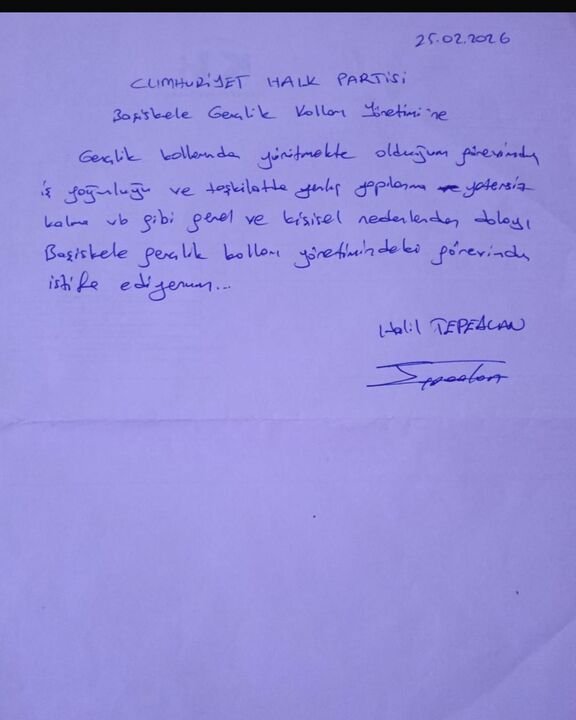 25.02.2026
CUMHURİYET HALK PARTİSİ
Başiskele Gençlik Kolları Yönetimi'ne
Gençlik kollarında yürütmekte olduğum görevimden
iş yoğunluğu ve teşkilatta yanlış yapılanma ve yetersiz
kalma vb gibi genel ve kişisel nedenlerden dolayı
Başiskele gençlik kolları yönetimindeki görevimden
istifa ediyorum...
Halil TEPEALAN